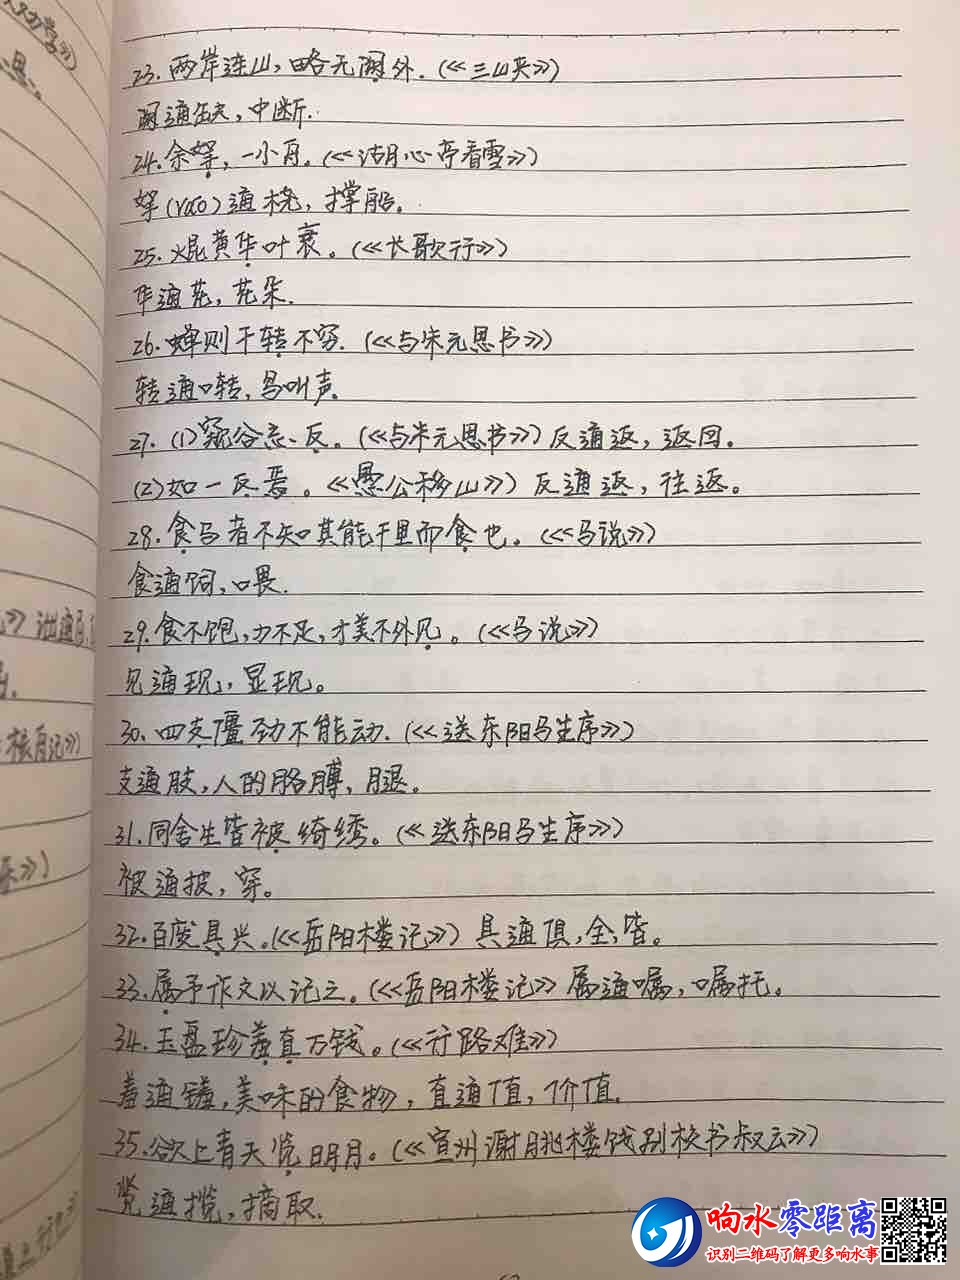 23.两岸连山，略无阙外.(《三山夹》)
阙通缺，中断.
24.余挐，一小舟。(《湖心亭看雪》)
挐(ráo)通桡，撑船。
25.焜黄华叶衰。(《长歌行》)
华通花，花朵.
26.蝉则千转不穷.(《与朱元思书》)
转通啭，鸟叫声.
27.(1)窥谷忘反。(《与朱元思书》)反通返，返回。
(2)如一反焉。《愚公移山》)反通返，往返。
28.食马者不知其能千里而食也。(《马说》)
食通饲，喂.
29.食不饱，力不足，才美不外见。(《马说》)
见通现，显现。
30.四支僵劲不能动.(《送东阳马生序》)
支通肢，人的胳膊，腿。
31.同舍生皆被绮绣。(《送东阳马生序》)
被通披，穿。
32.百废具兴.(《岳阳楼记》)具通俱，全，皆。
33.属予作文以记之。(《岳阳楼记》属通嘱，嘱托。
34.玉盘珍羞直万钱。(《行路难》)
羞通馐，美味的食物，直通值，价值.
35.欲上青天览明月。(《宣州谢朓楼饯别校书叔云》)
览通揽，摘取.
响水零距离
识别二维码了解更多响水事